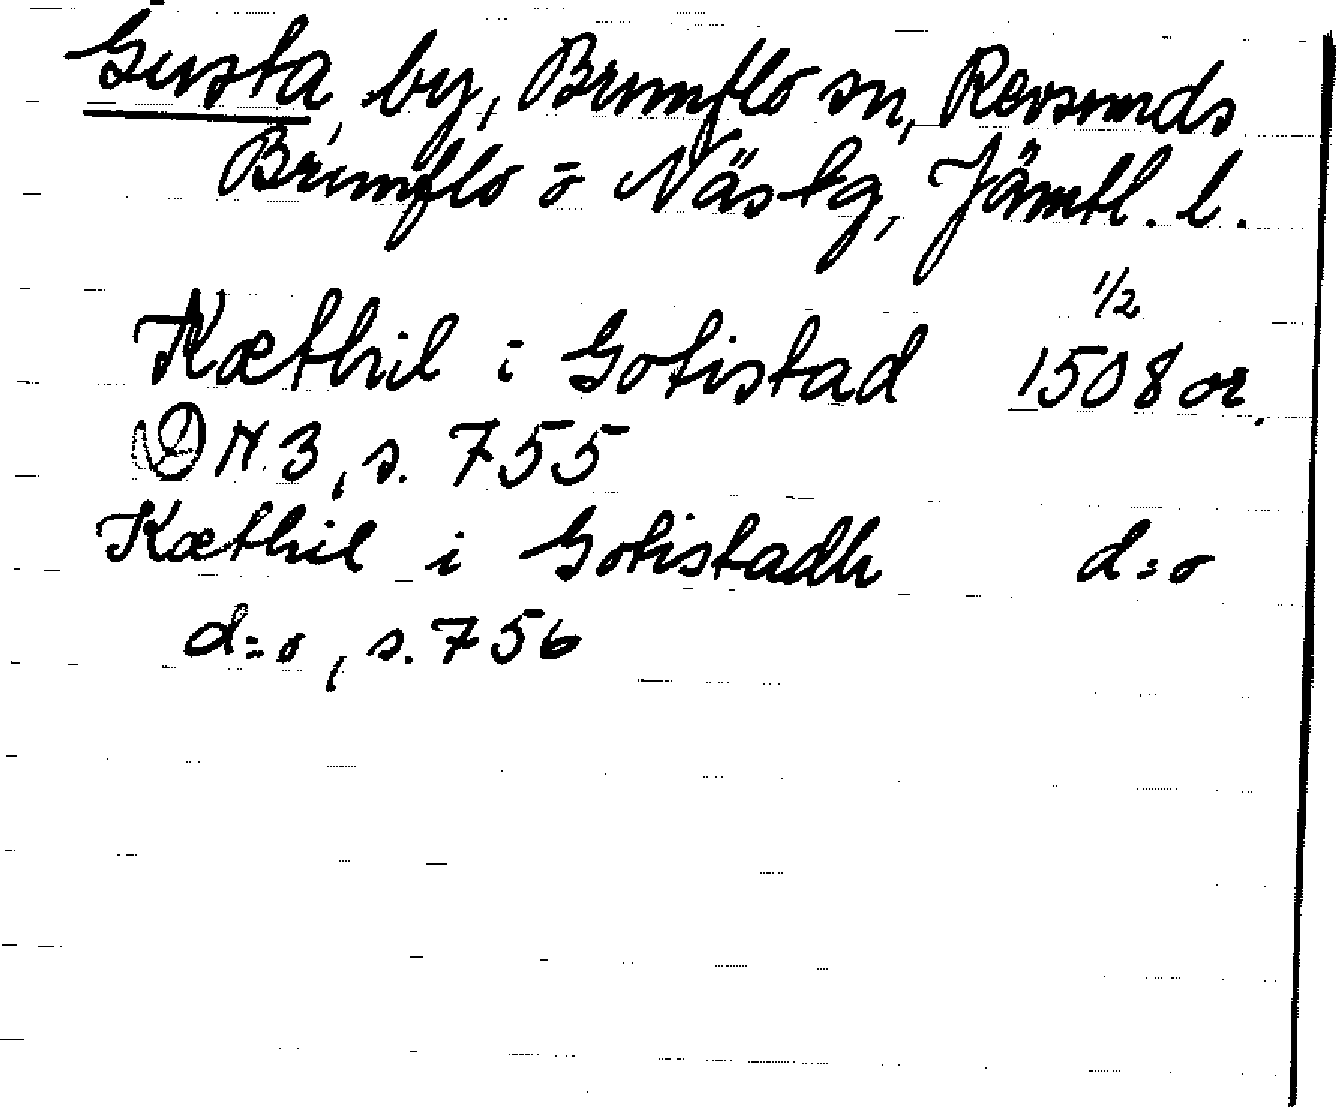 Gusta, by, Brunflo sn, Revsunds
Brunflo o Näs tg, Jämtl. l.
1/2
Kæthil i Gotistad 1508 or.
DN 3, s. 755
Kæthil i Gotistadh d=o
d=o, s. 756